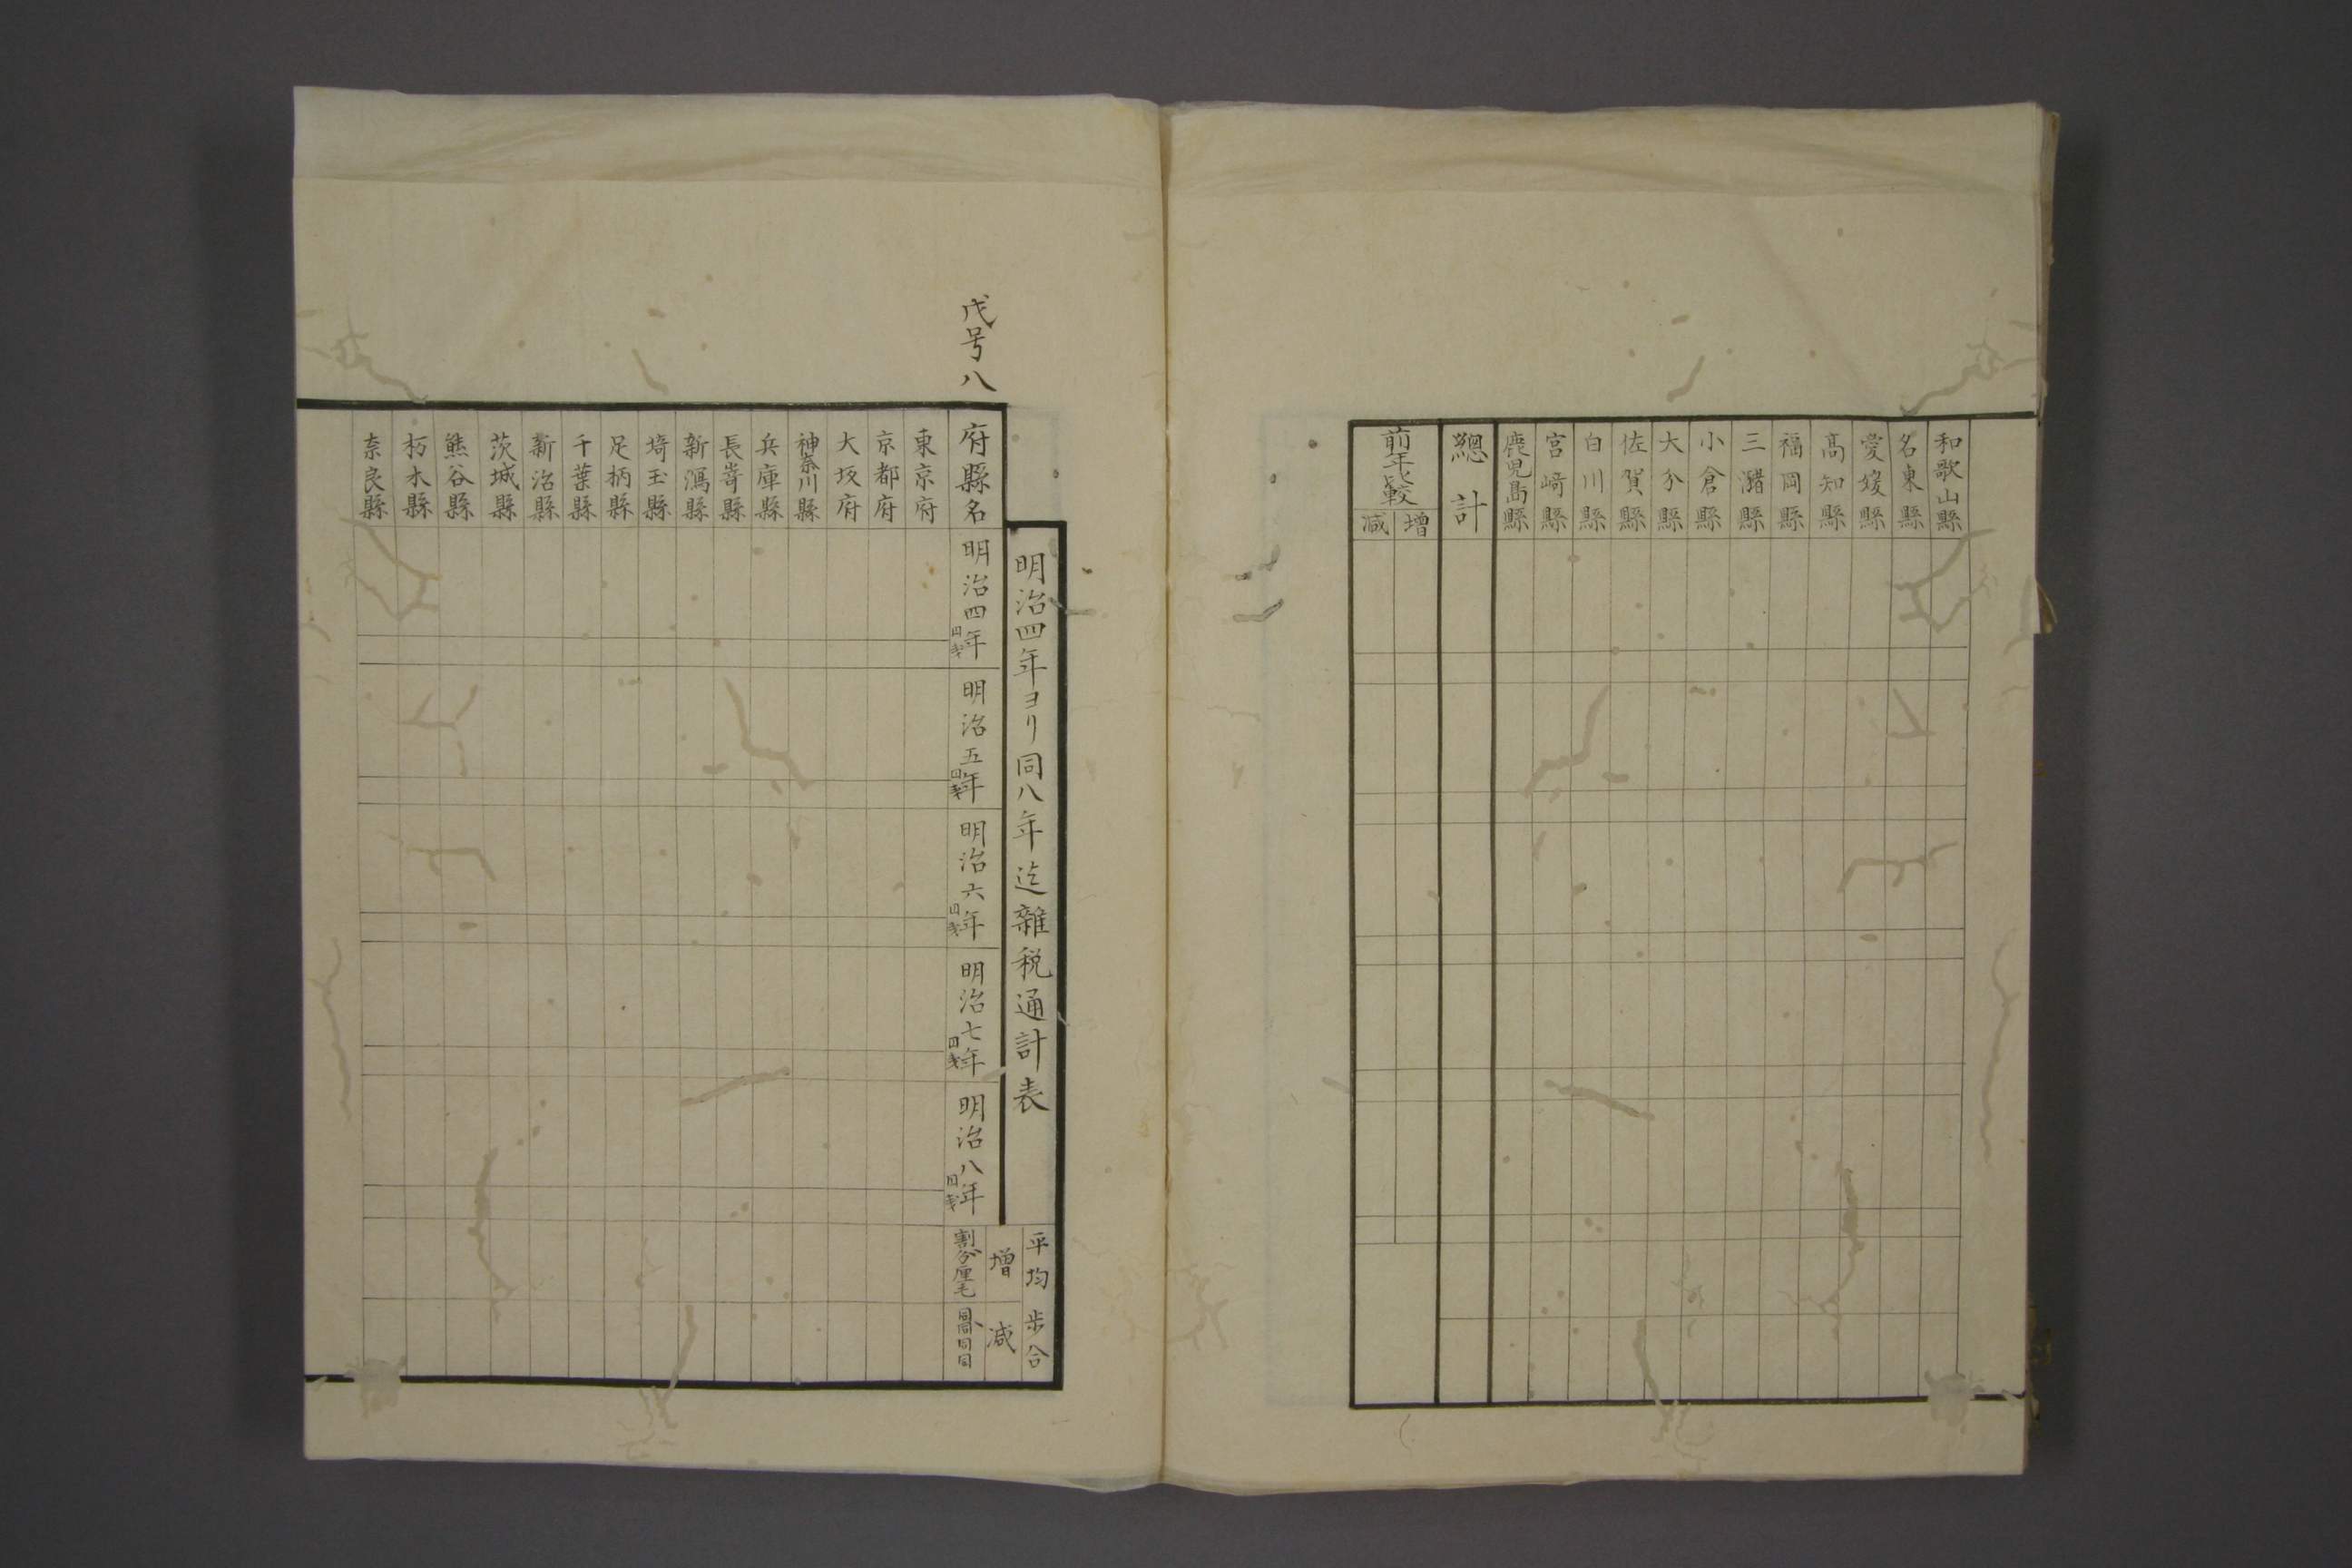 和歌山縣
名東縣
愛媛縣
高知縣
福岡縣
三潴縣
小倉縣
大分縣
佐賀縣
白川縣
宮﨑縣
鹿児島縣
總計
前年比較
增
減
戊号八
明治四年ヨリ同八年迄雜税通計表
平均歩合
增
減
府縣名
明治四年
明治五年
明治六年
明治七年
明治八年
割分厘毛
同同同同
東京府
京都府
大坂府
神奈川縣
兵庫縣
長嵜縣
新潟縣
埼玉縣
足柄縣
千葉縣
新治縣
茨城縣
熊谷縣
栃木縣
奈良縣